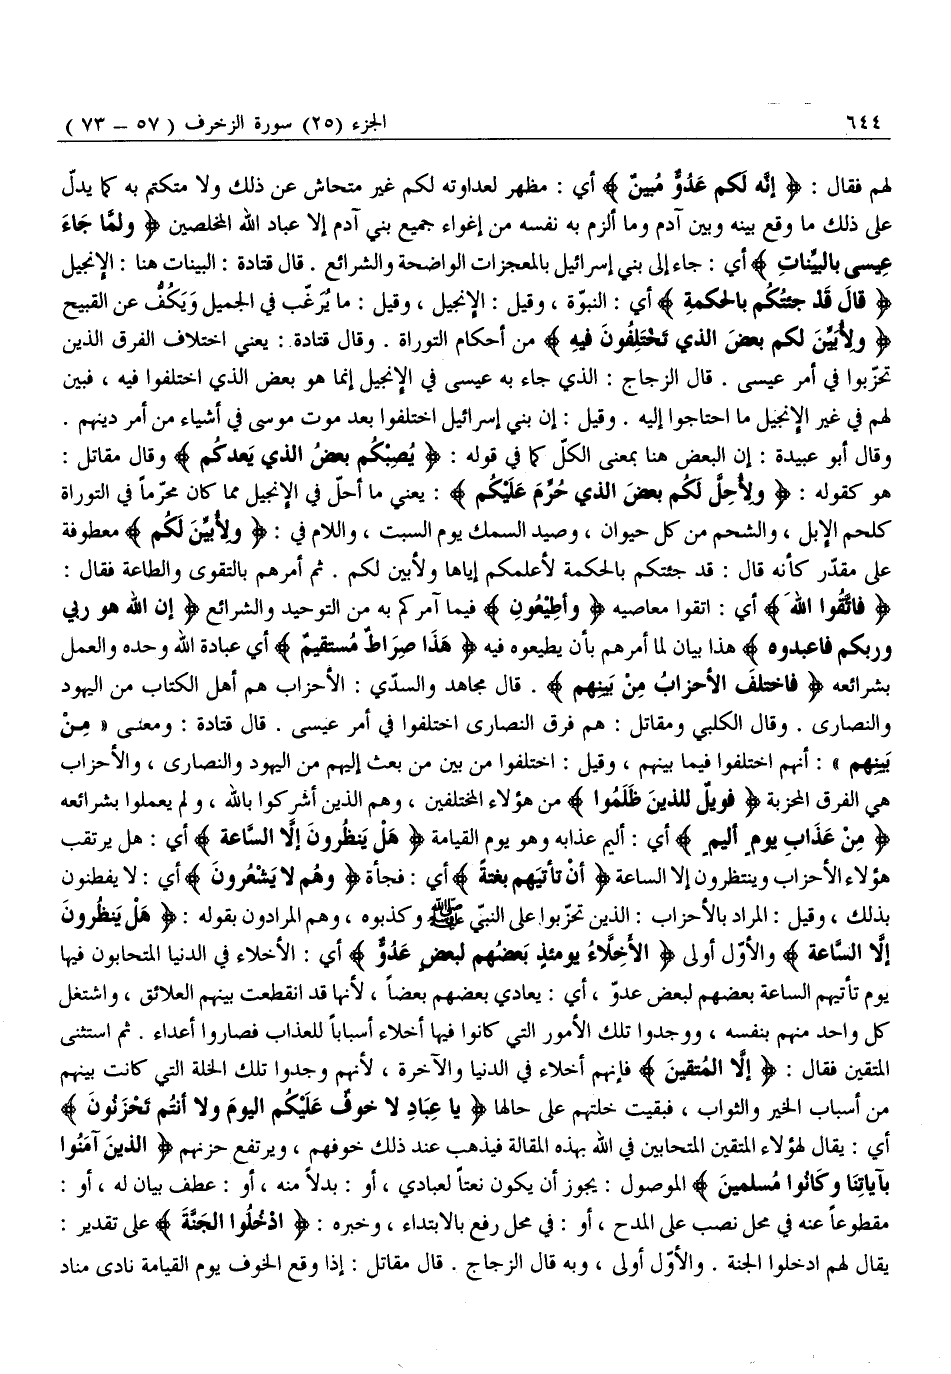 ٦٤٤
الجزء (٢٥) سورة الزخرف ( ٥٧ – ٧٣ )
لهم فقال : ﴿ إنَّه لَكم عَدُوٌّ مُبينٌ ﴾ أي : مظهر لعداوته لكم غير متحاش عن ذلك ولا متكتم به كما يدلّ
على ذلك ما وقع بينه وبين آدم وما ألزم به نفسه من إغواء جميع بني آدم إلا عباد الله المخلصين ﴿ ولمَّا جَاءَ
عِيسى بالبيِّناتِ ﴾ أي : جاء إلى بني إسرائيل بالمعجزات الواضحة والشرائع . قال قتادة : البينات هنا : الإنجيل
﴿ قالَ قَدْ جئتُكُم بالحكمةِ ﴾ أي : النبوّة ، وقيل : الإنجيل ، وقيل : ما يُرَغّب في الجميل وَيَكُفُّ عن القبيح
﴿ ولِأُبيِّنَ لكم بعضَ الذي تَخْتلِفُونَ فيهِ ﴾ من أحكام التوراة . وقال قتادة : يعني اختلاف الفرق الذين
تحزّبوا في أمر عيسى . قال الزجاج : الذي جاء به عيسى في الإنجيل إنما هو بعض الذي اختلفوا فيه ، فبين
لهم في غير الإنجيل ما احتاجوا إليه . وقيل : إن بني إسرائيل اختلفوا بعد موت موسى في أشياء من أمر دينهم .
وقال أبو عبيدة : إن البعض هنا بمعنى الكلّ كما في قوله : ﴿ يُصِبْكُم بعضُ الذي يَعدكُم ﴾ وقال مقاتل :
هو كقوله : ﴿ ولِأُحِلَّ لَكُم بعضَ الذي حُرِّمَ عَلَيْكُم ﴾ : يعني ما أحلّ في الإنجيل مما كان محرّماً في التوراة
كلحم الإبل ، والشحم من كل حيوان ، وصيد السمك يوم السبت ، واللام في : ﴿ ولِأُبيِّنَ لَكُم ﴾ معطوفة
على مقدّر كأنه قال : قد جئتكم بالحكمة لأعلمكم إياها ولأبين لكم . ثم أمرهم بالتقوى والطاعة فقال :
﴿ فاتَّقُوا اللهَ ﴾ أي : اتقوا معاصيه ﴿ وأطِيْعُونِ ﴾ فيما آمركم به من التوحيد والشرائع ﴿ إن الله هو ربي
وربكم فاعبدوه ﴾ هذا بيان لما أمرهم بأن يطيعوه فيه ﴿ هَذَا صِرَاطٌ مُستقيمٌ ﴾ أي عبادة الله وحده والعمل
بشرائعه ﴿ فاختلفَ الأحزابُ مِنْ بَينِهم ﴾ . قال مجاهد والسدّي : الأحزاب هم أهل الكتاب من اليهود
والنصارى . وقال الكلبي ومقاتل : هم فرق النصارى اختلفوا في أمر عيسى . قال قتادة : ومعنى « مِنْ
بَينِهم » : أنهم اختلفوا فيما بينهم ، وقيل : اختلفوا من بين من بعث إليهم من اليهود والنصارى ، والأحزاب
هي الفرق المحزبة ﴿ فويلٌ للذينَ ظَلَمُوا ﴾ من هؤلاء المختلفين ، وهم الذين أشركوا بالله ، ولم يعملوا بشرائعه
﴿ مِنْ عَذَابِ يومٍ أليمٍ ﴾ أي : أليم عذابه وهو يوم القيامة ﴿ هَلْ يَنظُرونَ إلَّا السَّاعة ﴾ أي : هل يرتقب
هؤلاء الأحزاب وينتظرون إلا الساعة ﴿ أنْ تأتيَهم بغتةً ﴾ أي : فجأة ﴿ وهُم لا يَشْعُرونَ ﴾ أي : لا يفطنون
بذلك ، وقيل : المراد بالأحزاب : الذين تحزّبوا على النبيّ ﷺ وكذبوه ، وهم المرادون بقوله : ﴿ هَلْ يَنظُرونَ
إلَّا السَّاعة ﴾ والأوّل أولى ﴿ الأَخِلَّاءُ يومئذٍ بَعضُهم لبعضٍ عَدُوٌّ ﴾ أي : الأخلاء في الدنيا المتحابون فيها
يوم تأتيهم الساعة بعضهم لبعض عدوّ ، أي : يعادي بعضهم بعضاً ، لأنها قد انقطعت بينهم العلائق ، واشتغل
كل واحد منهم بنفسه ، ووجدوا تلك الأمور التي كانوا فيها أخلاء أسباباً للعذاب فصاروا أعداء . ثم استثنى
المتقين فقال : ﴿ إلَّا المُتقينَ ﴾ فإنهم أخلاء في الدنيا والآخرة ، لأنهم وجدوا تلك الخلة التي كانت بينهم
من أسباب الخير والثواب ، فبقيت خلتهم على حالها ﴿ يا عِبَادِ لا خوفٌ عَلَيْكُم اليومَ ولا أنتُم تَحْزَنُونَ ﴾
أي : يقال لهؤلاء المتقين المتحابين في الله بهذه المقالة فيذهب عند ذلك خوفهم ، ويرتفع حزنهم ﴿ الذينَ آمَنُوا
بآيَاتِنَا وكَانُوا مُسلمينَ ﴾ الموصول : يجوز أن يكون نعتاً لعبادي ، أو : بدلاً منه ، أو : عطف بيان له ، أو :
مقطوعاً عنه في محل نصب على المدح ، أو : في محل رفع بالابتداء ، وخبره : ﴿ ادْخُلُوا الجَنَّةَ ﴾ على تقدير :
يقال لهم ادخلوا الجنة . والأوّل أولى ، وبه قال الزجاج . قال مقاتل : إذا وقع الخوف يوم القيامة نادى مناد